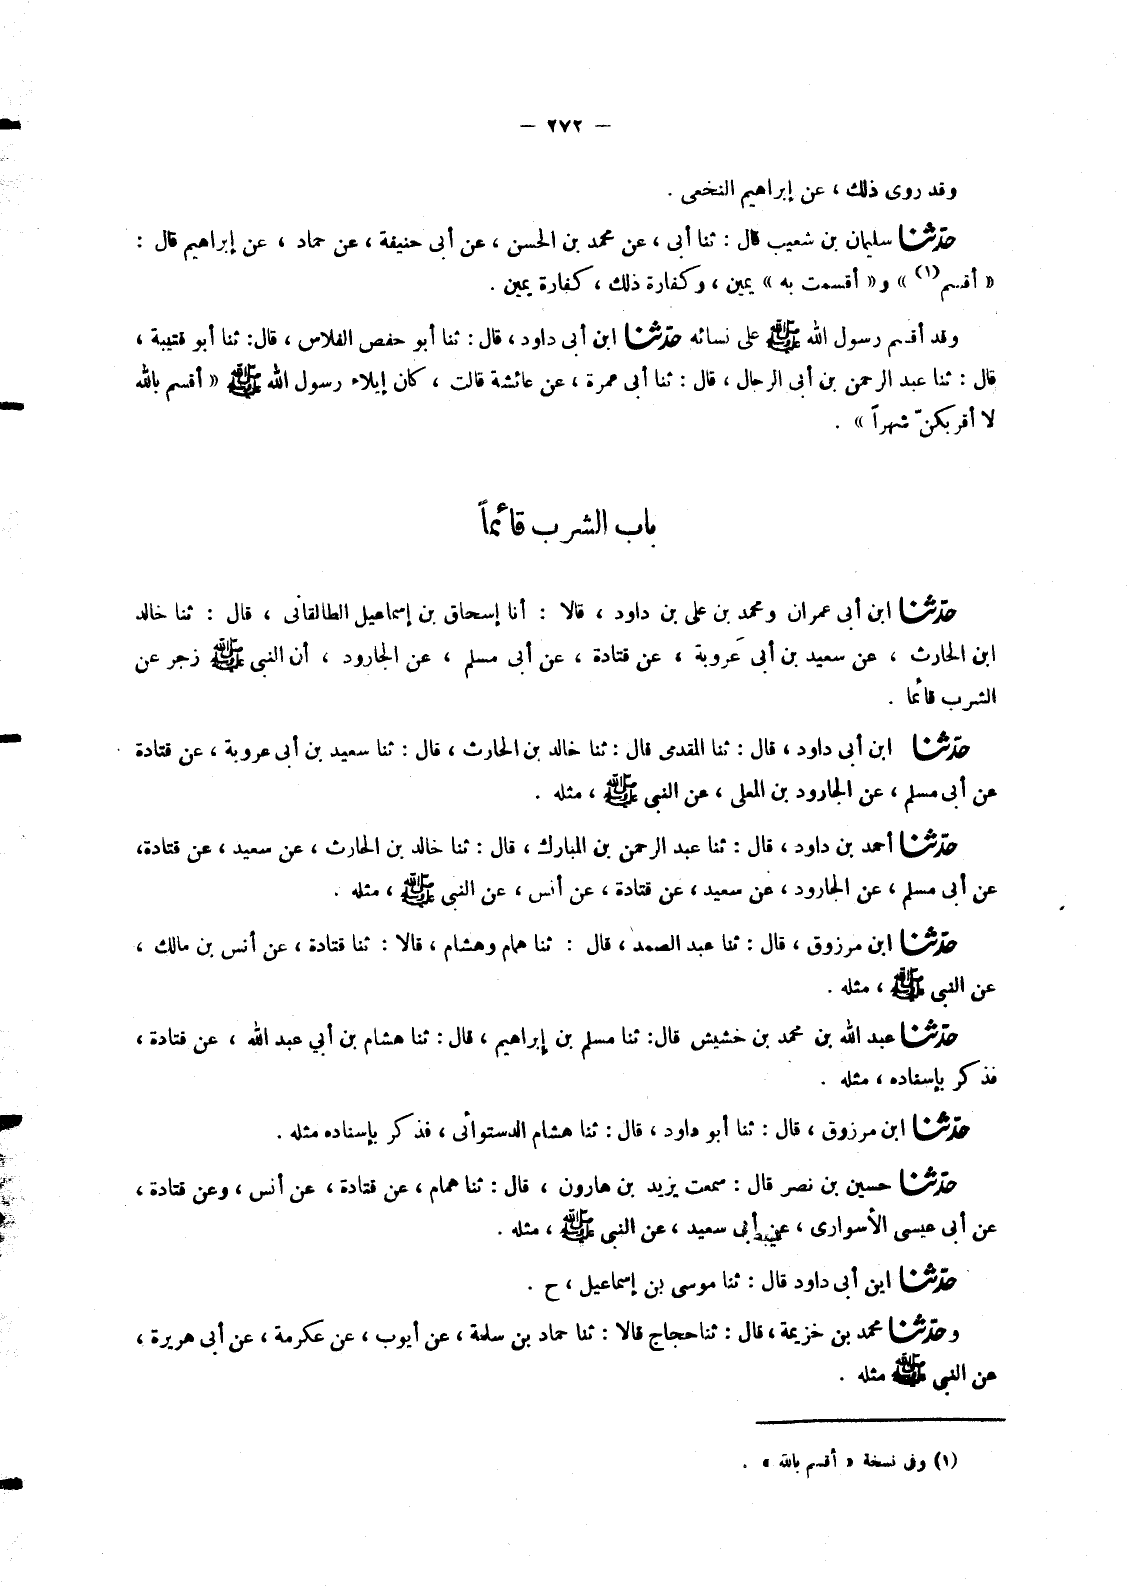 — ٢٧٢ —
وقد روى ذلك ، عن إبراهيم النخعى .
حدّثنا سليمان بن شعيب قال : ثنا أبى ، عن محمد بن الحسن ، عن أبى حنيفة ، عن حماد ، عن إبراهيم قال :
« أقسم(١) » و« أقسمت به » يمين ، وكفارة ذلك ، كفارة يمين .
وقد أقسم رسول الله ﷺ على نسائه حدّثنا ابن أبى داود ، قال : ثنا أبو حفص الفلاس ، قال: ثنا أبو قتيبة ،
قال : ثنا عبد الرحمن بن أبى الرجال ، قال : ثنا أبى عمرة ، عن عائشة قالت ، كان إيلاء رسول الله ﷺ « أقسم بالله
لا أقربكنّ شهراً » .
باب الشرب قائماً
حدّثنا ابن أبى عمران ومحمد بن على بن داود ، قالا : أنا إسحاق بن إسماعيل الطالقانى ، قال : ثنا خالد
ابن الحارث ، عن سعيد بن أبى عَروبة ، عن قتادة ، عن أبى مسلم ، عن الجارود ، أن النبي ﷺ زجر عن
الشرب قائما .
حدّثنا ابن أبى داود ، قال : ثنا المقدمى قال : ثنا خالد بن الحارث ، قال : ثنا سعيد بن أبى عروبة ، عن قتادة
عن أبى مسلم ، عن الجارود بن المعلى ، عن النبى ﷺ ، مثله .
حدّثنا أحمد بن داود ، قال : ثنا عبد الرحمن بن المبارك ، قال : ثنا خالد بن الحارث ، عن سعيد ، عن قتادة،
عن أبى مسلم ، عن الجارود ، عن سعيد ، عن قتادة ، عن أنس ، عن النبى ﷺ ، مثله .
حدّثنا ابن مرزوق ، قال : ثنا عبد الصمد ، قال : ثنا همام وهشام ، قالا : ثنا قتادة ، عن أنس بن مالك ،
عن النبى ﷺ ، مثله .
حدّثنا عبد الله بن محمد بن خشيش قال: ثنا مسلم بن إبراهيم ، قال : ثنا هشام بن أبي عبد الله ، عن قتادة ،
فذكر بإسناده ، مثله .
حدّثنا ابن مرزوق ، قال : ثنا أبو داود ، قال : ثنا هشام الدستوائى ، فذكر بإسناده مثله .
حدّثنا حسين بن نصر قال : سمعت يزيد بن هارون ، قال : ثنا همام ، عن قتادة ، عن أنس ، وعن قتادة ،
عن أبى عيسى الأسوارى ، عن أبى سعيد ، عن النبى ﷺ ، مثله .
حدّثنا ابن أبى داود قال : ثنا موسى بن إسماعيل ، ح .
وحدّثنا محمد بن خزيمة ، قال : ثنا حجاج قالا : ثنا حماد بن سلمة ، عن أيوب ، عن عكرمة ، عن أبى هريرة ،
عن النبى ﷺ مثله .
(١) وفى نسخة « أقسم بالله » .